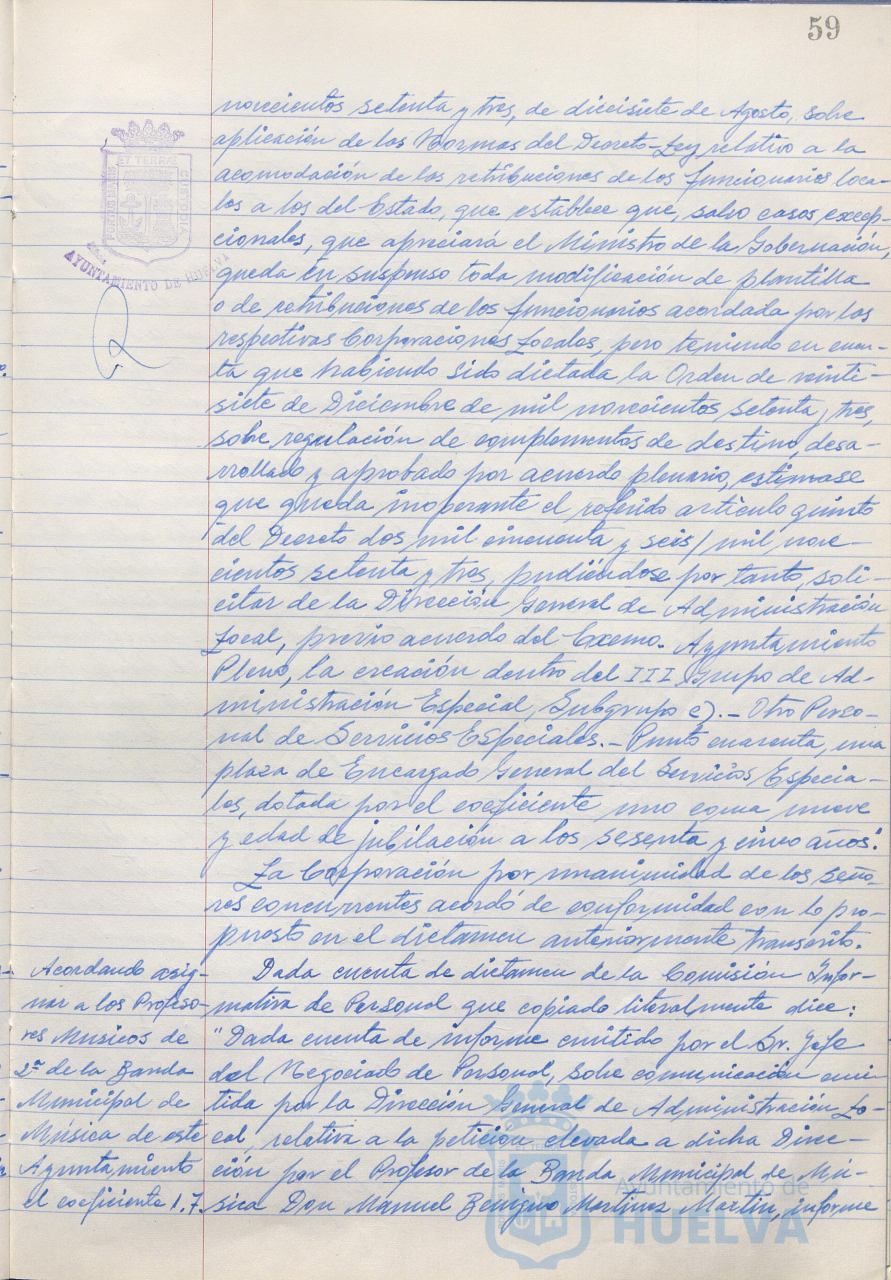 59
novecientos setenta y tres, de diecisiete de Agosto, sobre
aplicación de las Normas del Decreto-Ley relativo a la
acomodación de las retribuciones de los funcionarios loca-
les a los del Estado, que establece que, salvo casos excep-
cionales, que apreciará el Ministro de la Gobernación,
queda en suspenso toda modificación de plantilla
o de retribuciones de los funcionarios acordada por las
respectivas Corporaciones Locales, pero teniendo en cuen-
ta que habiendo sido dictada la Orden de veinti-
siete de Diciembre de mil novecientos setenta y tres,
sobre regulación de complementos de destino, desa-
rrollado y aprobado por acuerdo plenario, estimase
que queda inoperante el referido artículo quinto
del Decreto dos mil cincuenta y seis/ mil nove-
cientos setenta y tres, pudiéndose por tanto, soli-
citar de la Dirección General de Administración
Local, previo acuerdo del Excmo. Ayuntamiento
Pleno, la creación dentro del III Grupo de Ad-
ministración Especial, Subgrupo c). - Otro Perso-
nal de Servicios Especiales. - Punto cuarenta, una
plaza de Encargado General del Servicios Especia-
les, dotada por el coeficiente uno coma nueve
y edad de jubilación a los sesenta y cinco años."
La Corporación por unanimidad de los seño-
res concurrentes acordó de conformidad con lo pro-
puesto en el dictamen anteriormente transcrito.
Acordando asig-
nar a los Profeso-
res Músicos de
2ª de la Banda
Municipal de
Música de este
Ayuntamiento
el coeficiente 1.7.
Dada cuenta de dictamen de la Comisión Infor-
mativa de Personal que copiado literalmente dice:
"Dada cuenta de informe emitido por el Sr. Jefe
del Negociado de Personal, sobre comunicación emi-
tida por la Dirección General de Administración Lo-
cal, relativa a la petición elevada a dicha Direc-
ción por el Profesor de la Banda Municipal de Mú-
sica Don Manuel Benigno Martínez Martín, informe
PORTUS MARIS
ET TERRAE
CUSTODIA
AYUNTAMIENTO DE HUELVA
Ayuntamiento de
HUELVA